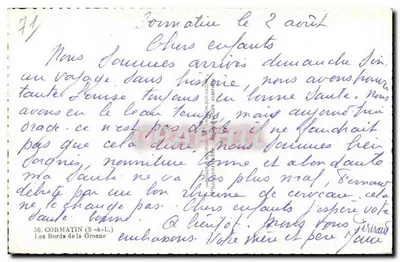 71
Cormatin le 2 août
Chers enfants
Nous sommes arrivés dimanche
un voyage sans histoire, nous avons trouvé
tante Louise toujours en bonne santé. Nous
avons eu le beau temps, mais aujourd'hui
orage ce n'est pas il ne faudrait
pas que cela dure. nous sommes très
soignés, nourriture bonne et abondante
ma santé ne va pas plus mal, Fernand
débute par un bon rhume de cerveau cela
ne change pas. Chers enfants j'espère votre
santé bonne
A bientôt. Nous vous
embrassons. Votre mère et père Fernand
56. CORMATIN (S.-&-L.)
Les Bords de la Grosne